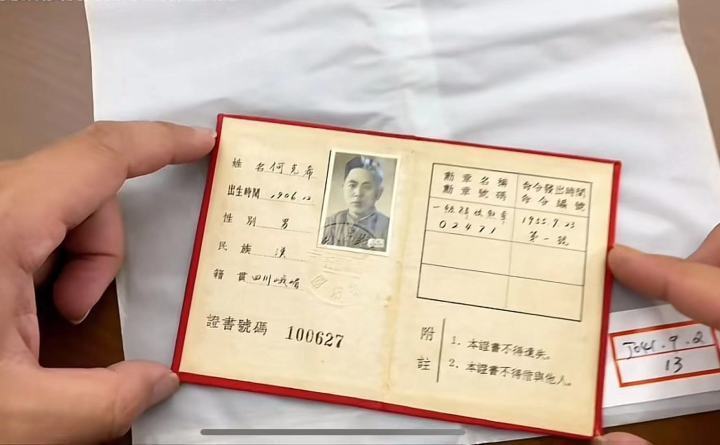 姓 名 何克希
出生時間 1906.12
性 別 男
民 族 漢
籍 貫 四川峨嵋
證書號碼 100627
勳章名稱
勳章號碼
命令發出時間
命令編號
一級解放勳章
02471
1955.9.23
第一號
附註
1. 本證書不得遺失。
2. 本證書不得借與他人。
J041.9.2
13